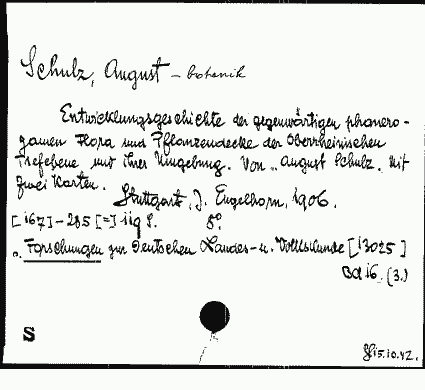 Schulz, August - botanik
Entwicklungsgeschichte der gegenwärtigen phanero-
gamen Flora und Pflanzendecke der Oberrheinischen
Tiefebene und ihrer Umgebung. Von .. August Schulz. Mit
zwei Karten.
Stuttgart, J. Engelhorn, 1906.
[167] - 285 [=] 119 S. 8°.
Forschungen zur Deutschen Landes- u. Volkskunde [13025]
Bd 16. (3.)
S
15.10.42.